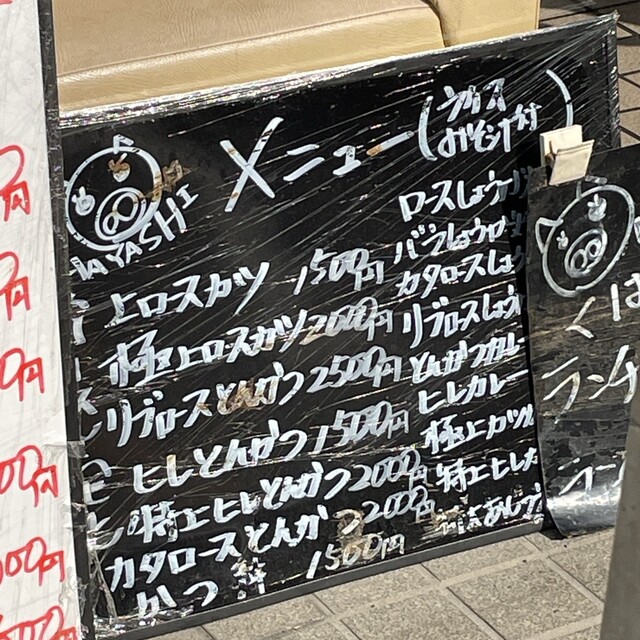 メニュー
(ライス
みそ汁付)
HAYASHI
上ロースカツ 1500円
極上ロースカツ 2000円
リブロースとんかつ 2500円
ヒレとんかつ 1500円
特上ヒレとんかつ 2000円
カタロースとんかつ 2000円
かつ丼 1500円
ロースしょうが
バラしょうが
カタロースしょ
リブロースしょう
とんかつカレー
ヒレカレー
極上カツカ
特上ヒレカ
ランチ
円
円
0円
00円
00円